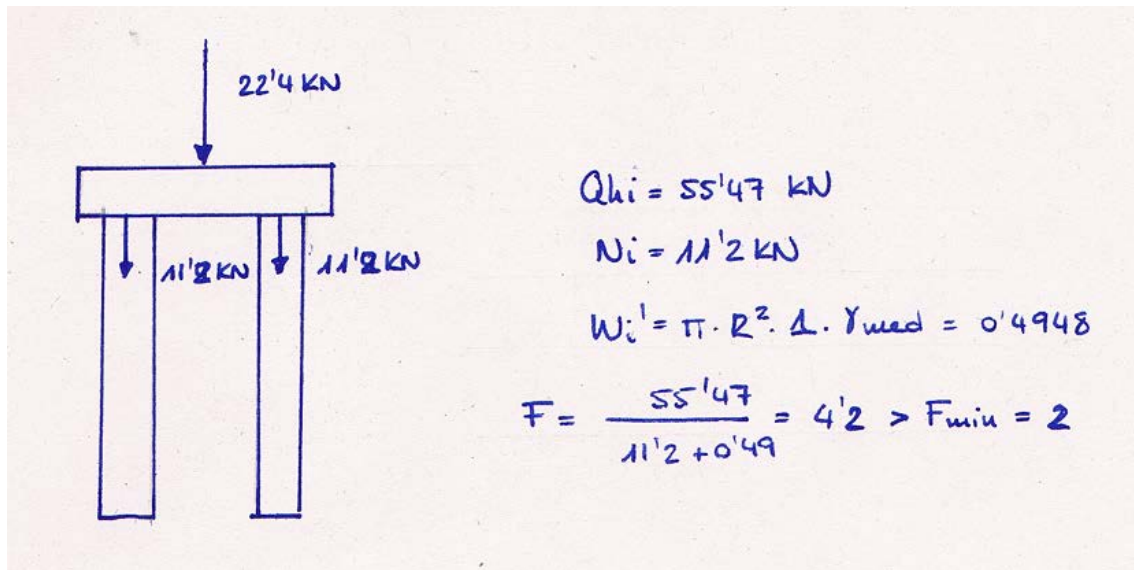 22'4 KN
11'2 KN
11'2 KN
Qhi = 55'47 KN
Ni = 11'2 KN
Wi' = π · R². 1. γmed = 0'4948
F = 55'47 / 11'2 + 0'49 = 4'2 > Fmin = 2